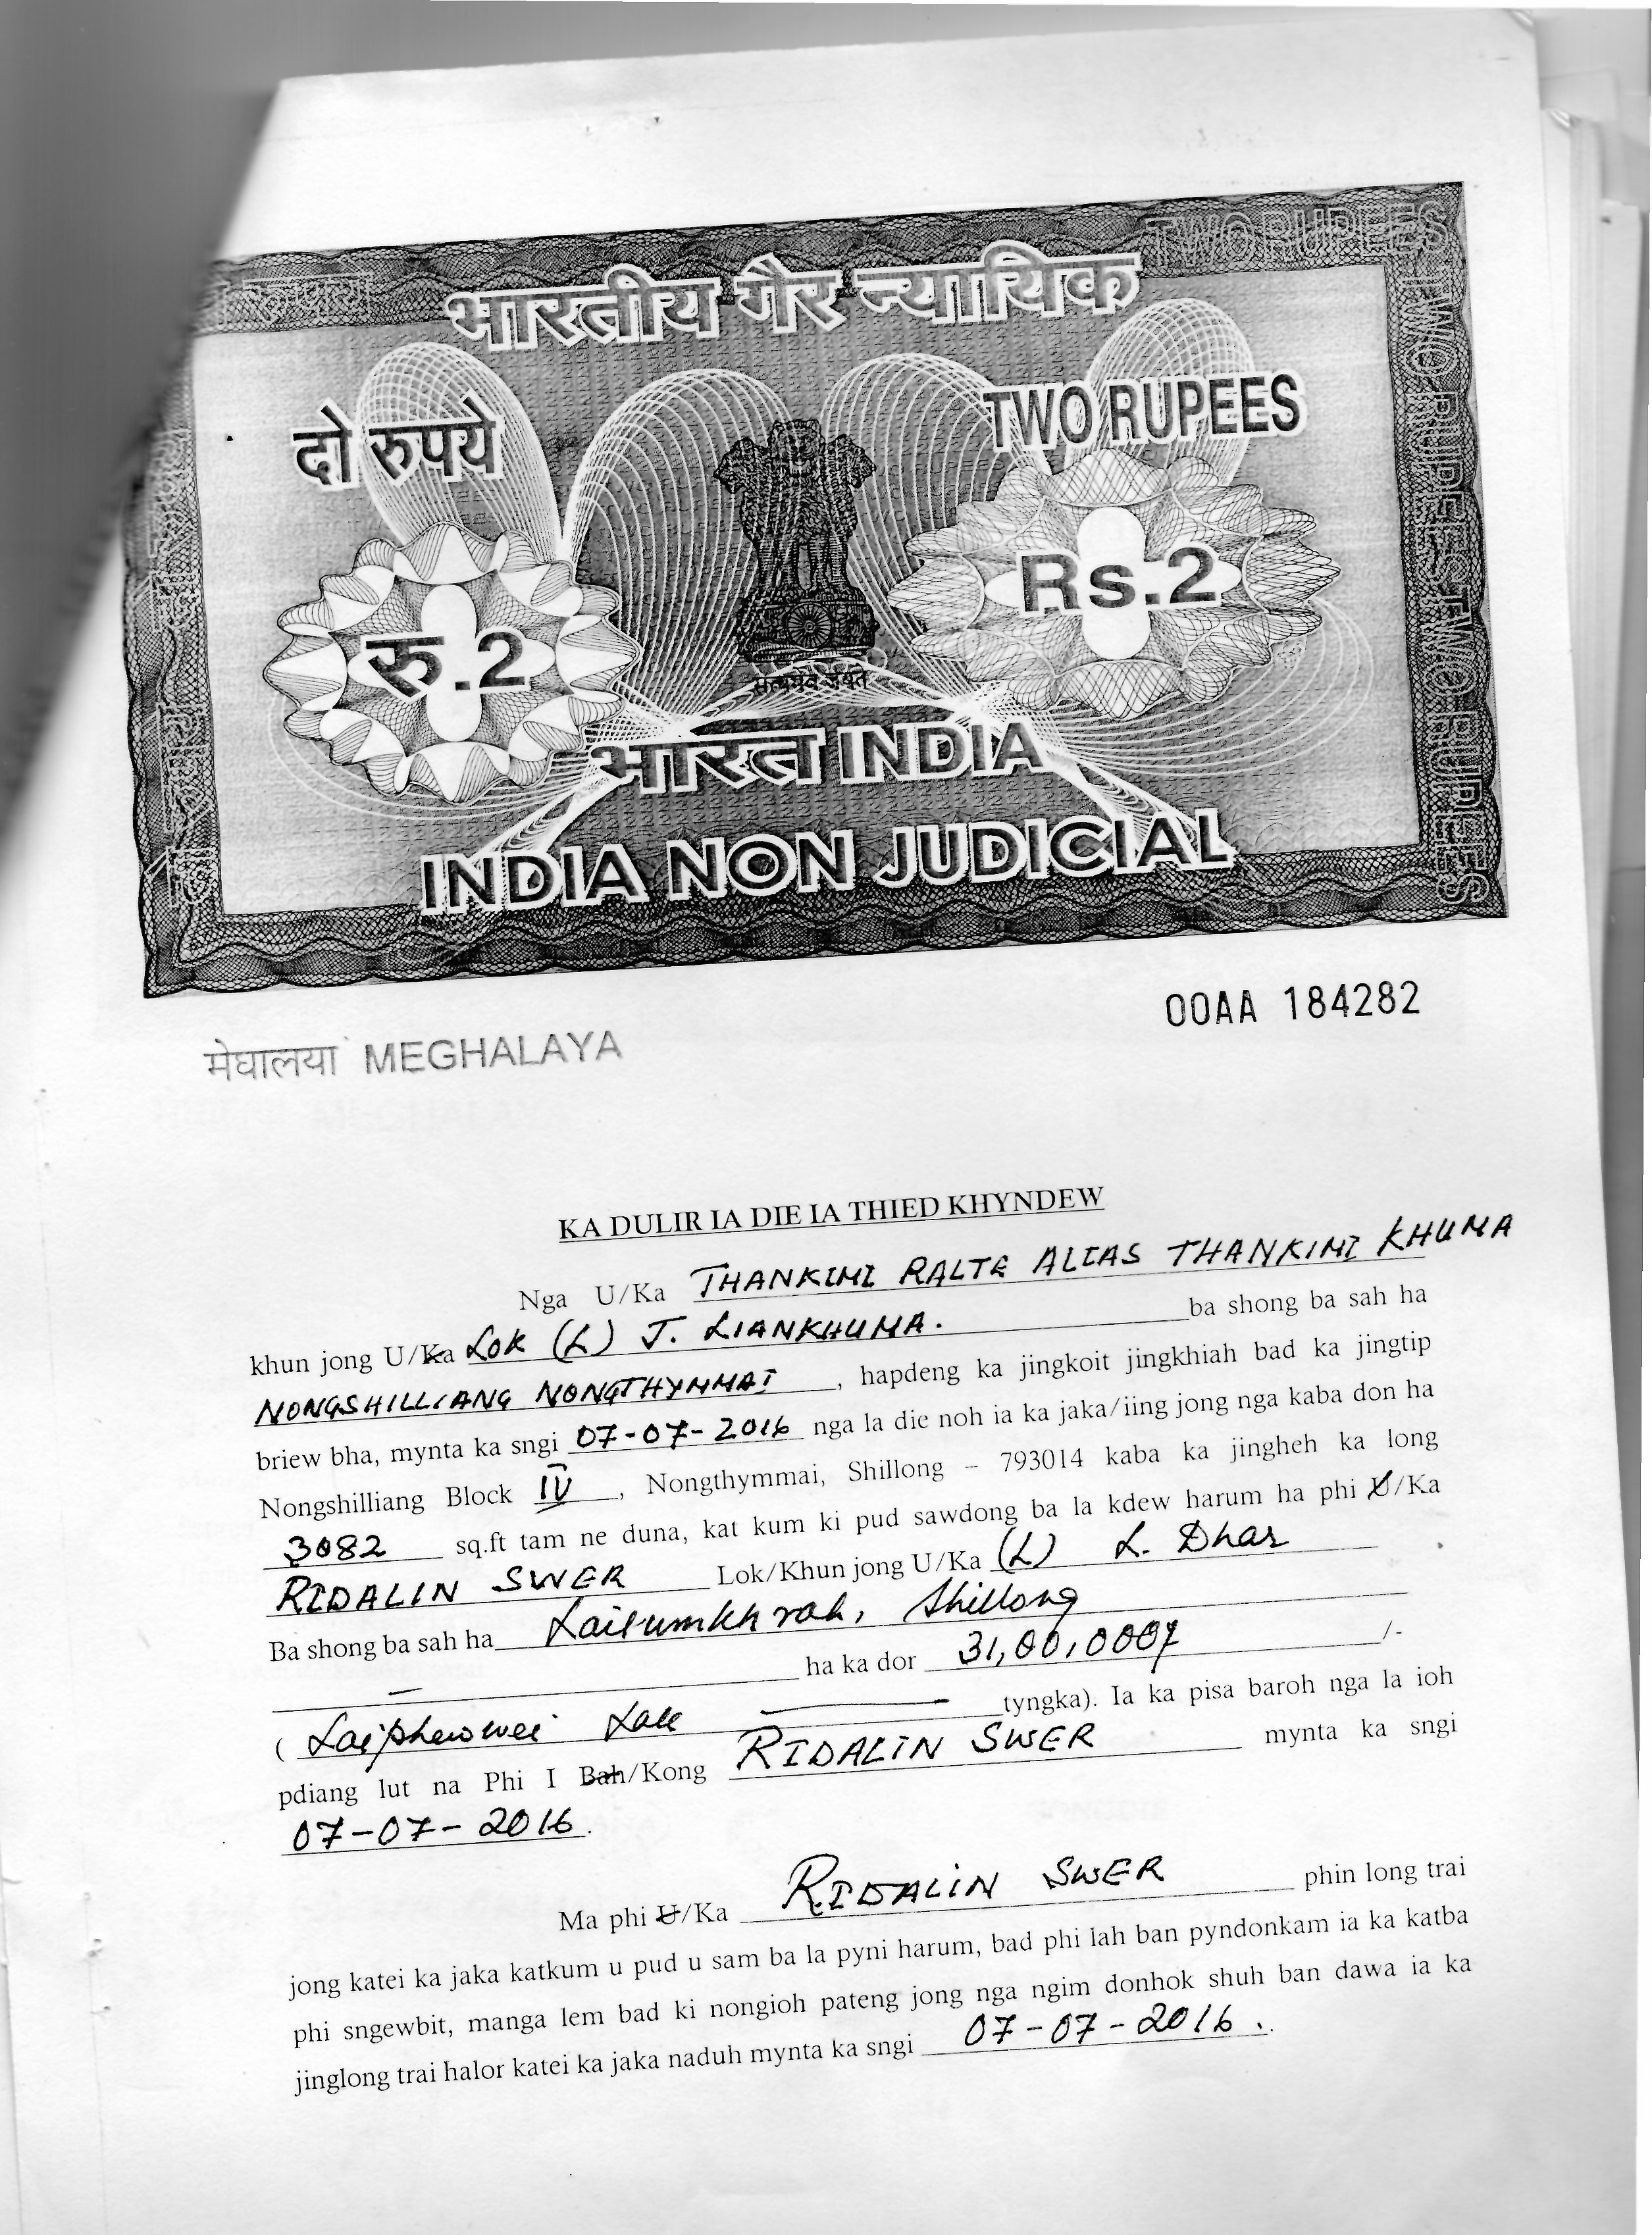 TWO RUPEES TWO RUPEES TWO RUPEES TWO RUPEES
भारतीय गैर न्यायिक
दो रुपये
TWO RUPEES
रु.2
Rs.2
सत्यमेव जयते
भारत INDIA
INDIA NON JUDICIAL
00AA 184282
मेघालया MEGHALAYA
KA DULIR IA DIE IA THIED KHYNDEW
Nga U/Ka THANKIMI RALTE ALIAS THANKIMI KHUMA
khun jong U/Ka Lok (L) J. LIANKHUMA. ba shong ba sah ha
NONGSHILLIANG NONGTHYMMAI, hapdeng ka jingkoit jingkhiah bad ka jingtip
briew bha, mynta ka sngi 07-07-2016 nga la die noh ia ka jaka/iing jong nga kaba don ha
Nongshilliang Block IV, Nongthymmai, Shillong – 793014 kaba ka jingheh ka long
3082 sq.ft tam ne duna, kat kum ki pud sawdong ba la kdew harum ha phi U/Ka
RIDALIN SWER Lok/Khun jong U/Ka (L) L. Dhar
Ba shong ba sah ha Laitumkhrah, Shillong
— ha ka dor 31,00,000/ /-
( Laiphewwei Lak — tyngka). Ia ka pisa baroh nga la ioh
pdiang lut na Phi I Bah/Kong RIDALIN SWER mynta ka sngi
07-07-2016.
Ma phi U/Ka RIDALIN SWER phin long trai
jong katei ka jaka katkum u pud u sam ba la pyni harum, bad phi lah ban pyndonkam ia ka katba
phi sngewbit, manga lem bad ki nongioh pateng jong nga ngim donhok shuh ban dawa ia ka
jinglong trai halor katei ka jaka naduh mynta ka sngi 07-07-2016.